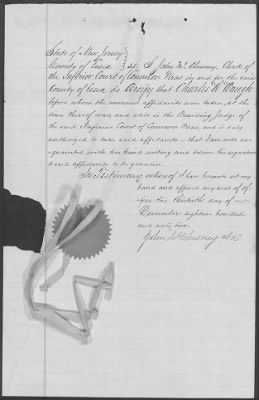 State of New Jersey
County of Essex } ss. I John McChesney, Clerk of
the Inferior Court of Common Pleas in and for the said
County of Essex do Certify that Charles R. Waugh
before whom the annexed affidavits were taken, at the
time thereof was and still is the Presiding Judge of
the said Inferior Court of Common Pleas, and is duly
authorized to take said affidavits – that I am well ac-
quainted with his hand writing and believe his signature
to said affidavits to be genuine.
In Testimony whereof I have hereunto set my
hand and affixed my seal of of-
fice this day of
December eighteen hundred
and sixty two.
John McChesney Clk